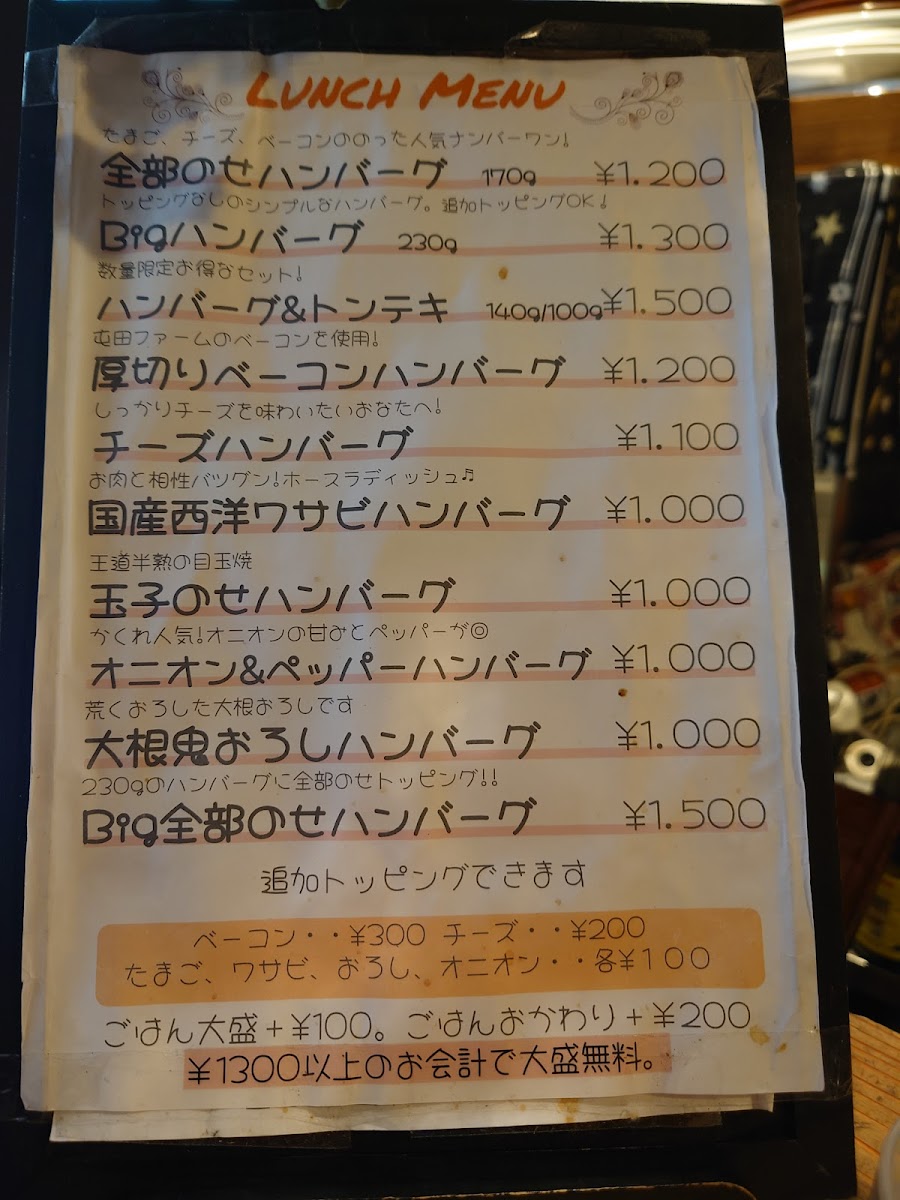 LUNCH MENU
たまご、チーズ、ベーコンののった人気ナンバーワン!
全部のせハンバーグ 170g ¥1.200
トッピングなしのシンプルなハンバーグ。追加トッピングOK♩
Bigハンバーグ 230g ¥1.300
数量限定お得なセット!
ハンバーグ&トンテキ 140g/100g ¥1.500
屯田ファームのベーコンを使用!
厚切りベーコンハンバーグ ¥1.200
しっかりチーズを味わいたいあなたへ!
チーズハンバーグ ¥1.100
お肉と相性バツグン!ホースラディッシュ♬
国産西洋ワサビハンバーグ ¥1.000
王道半熟の目玉焼
玉子のせハンバーグ ¥1.000
かくれ人気!オニオンの甘みとペッパーが◎
オニオン&ペッパーハンバーグ ¥1.000
荒くおろした大根おろしです
大根鬼おろしハンバーグ ¥1.000
230gのハンバーグに全部のせトッピング!!
Big全部のせハンバーグ ¥1.500
追加トッピングできます
ベーコン・・¥300 チーズ・・¥200
たまご、ワサビ、おろし、オニオン・・各¥100
ごはん大盛+¥100。ごはんおかわり+¥200
¥1300以上のお会計で大盛無料。